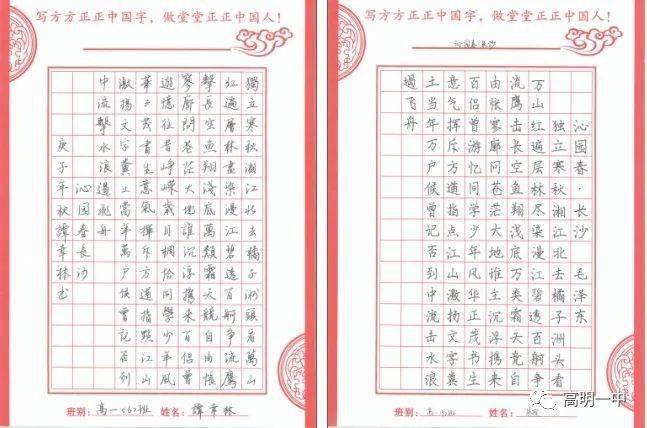 写方方正正中国字，做堂堂正正中国人！
獨立寒秋湘江北去橘子洲頭看萬山
紅遍層林盡染漫江碧透百舸爭流鷹
擊長空魚翔淺底萬類霜天競自由悵
寥廓問蒼茫大地誰沉浮攜來百侶曾
遊憶往昔崢嶸歲月稠恰同學少年風
華正茂書生意氣揮斥方遒指點江山
激揚文字糞土當年萬户侯曾記否到
中流擊水浪遏飛舟
沁园春長沙
庚子年秋譚幸林书
班别：高一〈6〉班 姓名：譚幸林
写方方正正中国字，做堂堂正正中国人！
沁园春·长沙
沁园春·长沙毛泽东
独立寒秋湘江北去橘子洲头看
万山红遍层林尽染漫江碧透百舸争
流鹰击长空鱼翔浅底万类霜天竞自
由怅寥廓问苍茫大地谁主沉浮携来
百侣曾游忆同学少年风华正茂书生
意气挥斥方遒指点江山激扬文字粪
土当年万户侯曾记否到中流击水浪
遏飞舟
班别： 姓名：
高明一中